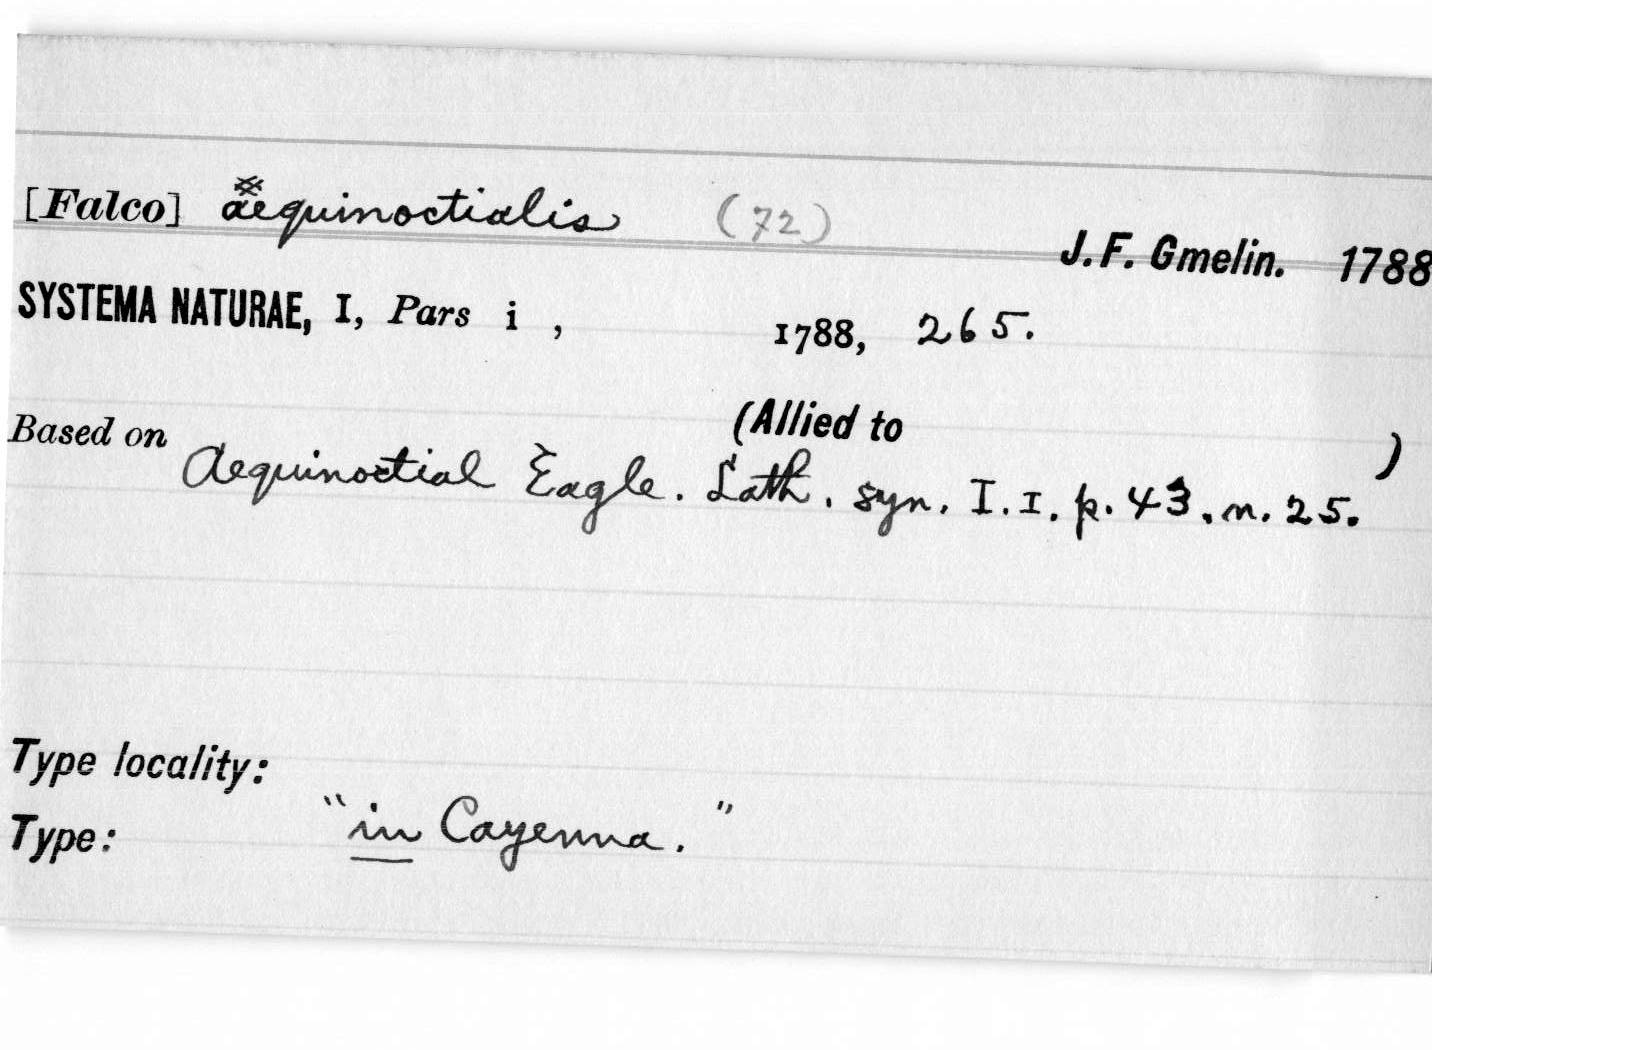 [Falco] aequinoctialis (72)
J. F. Gmelin. 1788
SYSTEMA NATURAE, I, Pars i, 1788, 265.
(Allied to )
Based on Aequinoctial Eagle. Lath. syn. I. I. p. 43. n. 25.
Type locality:
Type: "in Cayenna."